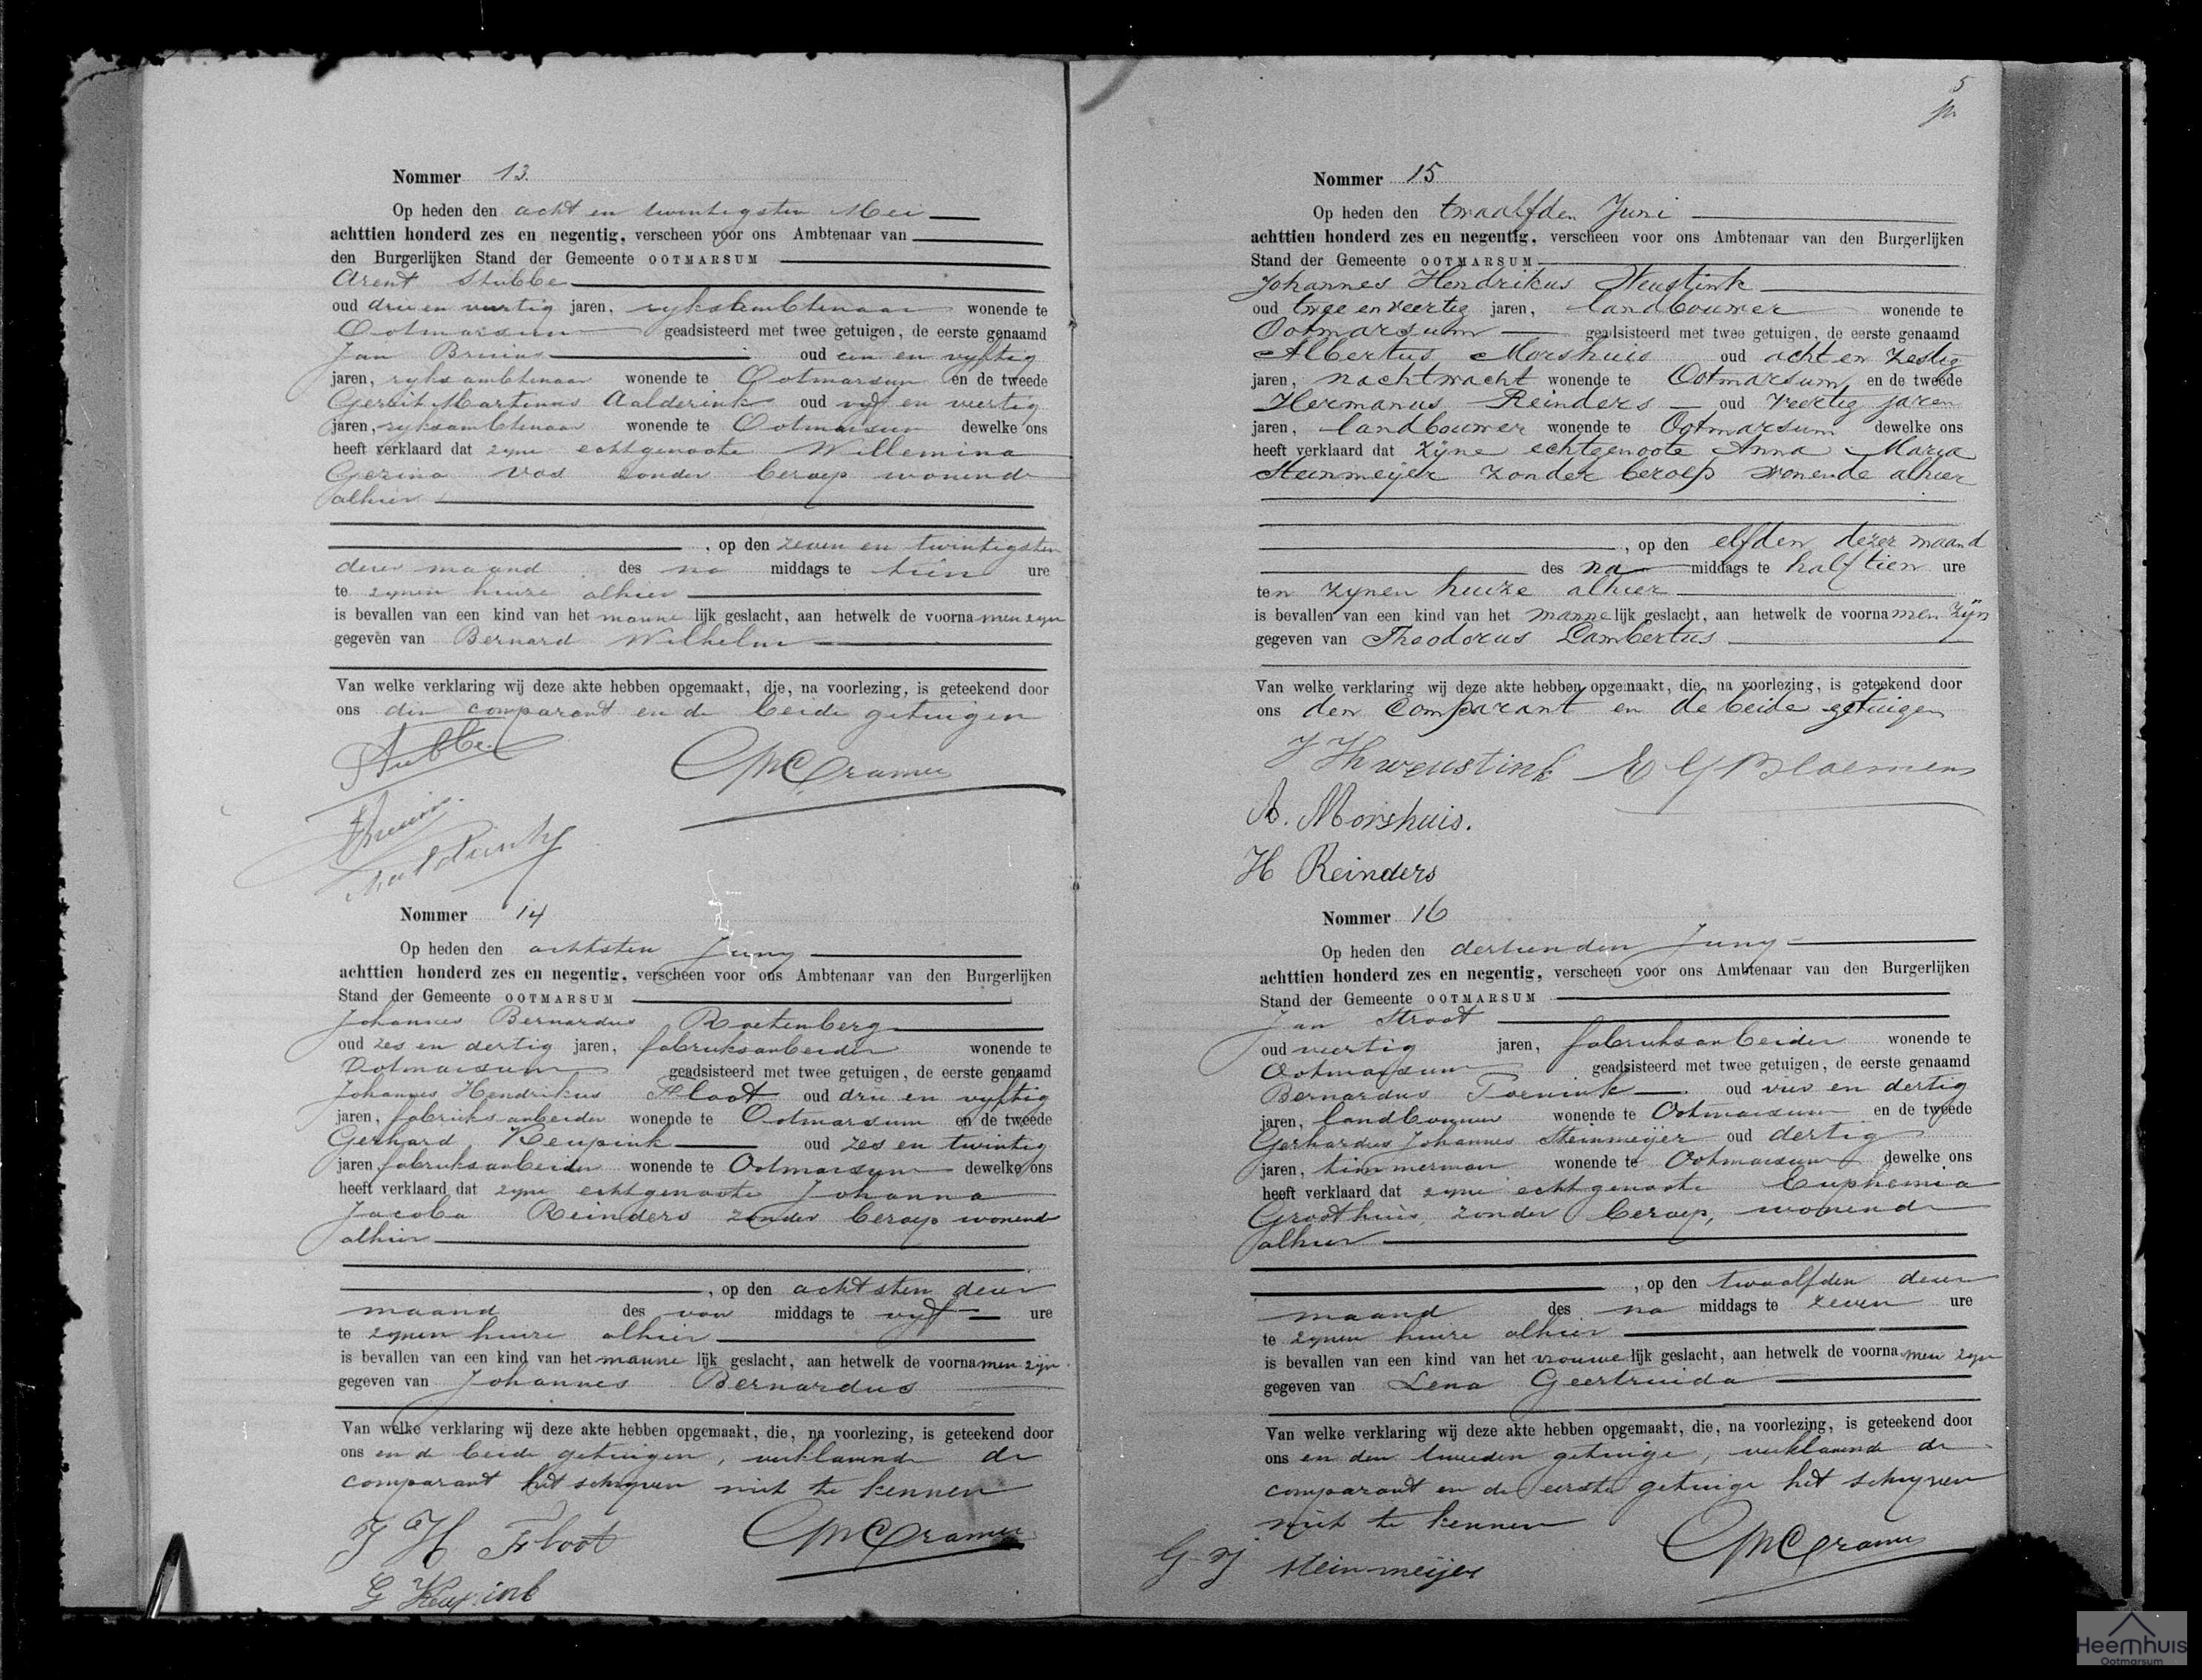 Nommer 13.
Op heden den acht en twintigsten Mei
achttien honderd zes en negentig, verscheen voor ons Ambtenaar van
den Burgerlijken Stand der Gemeente OOTMARSUM
Arent Stubbe
oud drie en veertig jaren, ryksambtenaar wonende te
Ootmarsum geadsisteerd met twee getuigen, de eerste genaamd
Jan Bruins oud een en vyftig
jaren, ryksambtenaar wonende te Ootmarsum en de tweede
Gerrit Martinus Aalderink oud vyf en veertig
jaren, ryksambtenaar wonende te Ootmarsum dewelke ons
heeft verklaard dat zyne echtgenoote Willemina
Gezina Vos zonder beroep wonende
alhier
, op den zeven en twintigsten
dezer maand des na middags te tien ure
te zynen huize alhier
is bevallen van een kind van het manne lijk geslacht, aan hetwelk de voorna men zyn
gegeven van Bernard Wilhelm
Van welke verklaring wij deze akte hebben opgemaakt, die, na voorlezing, is geteekend door
ons den comparant en de beide getuigen
Stubbe.
Cramer
Bruins.
Aalderink
Nommer 14
Op heden den achtsten Juny
achttien honderd zes en negentig, verscheen voor ons Ambtenaar van den Burgerlijken
Stand der Gemeente OOTMARSUM
Johannes Bernardus Roetenberg
oud zes en dertig jaren, fabrieksarbeider wonende te
Ootmarsum geadsisteerd met twee getuigen, de eerste genaamd
Johannes Hendrikus Floot oud drie en vyftig
jaren, fabrieksarbeider wonende te Ootmarsum en de tweede
Gerhard Keupink oud zes en twintig
jaren, fabrieksarbeider wonende te Ootmarsum dewelke ons
heeft verklaard dat zyne echtgenoote Johanna
Jacoba Reinders zonder beroep wonende
alhier
, op den achtsten dezer
maand des voor middags te vyf ure
te zynen huize alhier
is bevallen van een kind van het manne lijk geslacht, aan hetwelk de voorna men zijn
gegeven van Johannes Bernardus
Van welke verklaring wij deze akte hebben opgemaakt, die, na voorlezing, is geteekend door
ons en de beide getuigen, verklarende de
comparant het schryven niet te kennen
J H Floot
Cramer
G Keupink
5
Nommer 15
Op heden den twaalfden Juni
achttien honderd zes en negentig, verscheen voor ons Ambtenaar van den Burgerlijken
Stand der Gemeente OOTMARSUM
Johannes Hendrikus Weustink
oud twee en veertig jaren, landbouwer wonende te
Ootmarsum geadsisteerd met twee getuigen, de eerste genaamd
Albertus Morshuis oud acht en zestig
jaren, nachtwacht wonende te Ootmarsum en de tweede
Hermanus Reinders oud veertig jaren
jaren, landbouwer wonende te Ootmarsum dewelke ons
heeft verklaard dat zijne echtgenoote Anna Maria
Steinmeijer zonder beroep wonende alhier
, op den elfden dezer maand
des na middags te half tien ure
ten zynen huize alhier
is bevallen van een kind van het manne lijk geslacht, aan hetwelk de voorna men zijn
gegeven van Theodorus Lambertus
Van welke verklaring wij deze akte hebben opgemaakt, die, na voorlezing, is geteekend door
ons den comparant en de beide getuigen
J H weustink Bloemen
A. Morshuis.
H Reinders
Nommer 16
Op heden den dertienden Juny
achttien honderd zes en negentig, verscheen voor ons Ambtenaar van den Burgerlijken
Stand der Gemeente OOTMARSUM
Jan Stroot
oud veertig jaren, fabrieksarbeider wonende te
Ootmarsum geadsisteerd met twee getuigen, de eerste genaamd
Bernardus oud vier en dertig
jaren, landbouwer wonende te Ootmarsum en de tweede
Gerhardus Johannes Steinmeijer oud dertig
jaren, timmerman wonende te Ootmarsum dewelke ons
heeft verklaard dat zyne echtgenoote Euphemia
Groothuis, zonder beroep, wonende
alhier
, op den twaalfden dezer
maand des na middags te zeven ure
te zynen huize alhier
is bevallen van een kind van het vrouwe lijk geslacht, aan hetwelk de voorna men zyn
gegeven van Lena Geertruida
Van welke verklaring wij deze akte hebben opgemaakt, die, na voorlezing, is geteekend door
ons en den tweeden getuige, verklarende de
comparant en de eerste getuige het schryven
niet te kennen
Cramer
G J Steinmeijer
Heemhuis
Ootmarsum